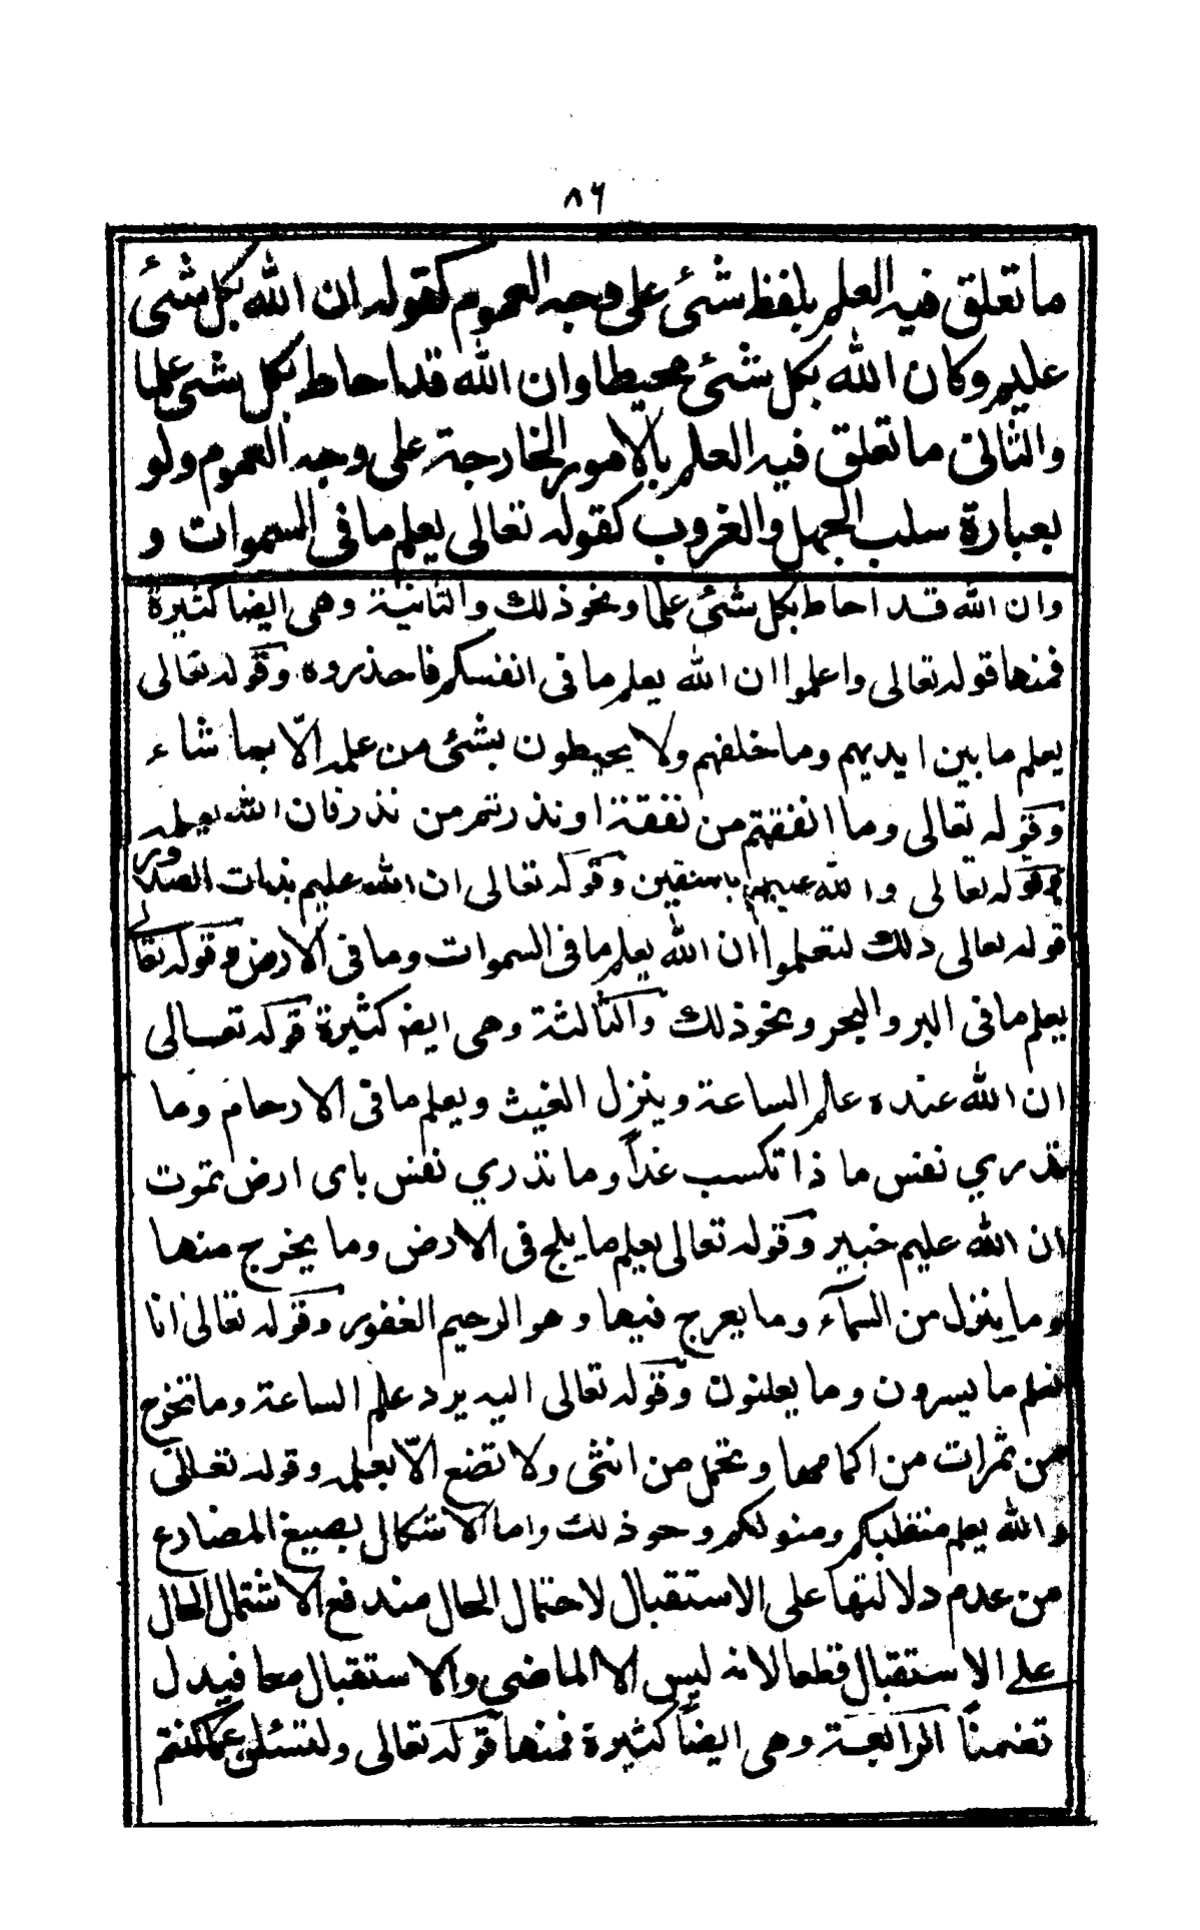 ٨٦
ما تعلق فيه العلم بلفظ شئ على وجه العموم كقوله ان الله بكل شئ
عليم وكان الله بكل شئ محيطا وان الله قد احاط بكل شئ علما
والثانى ما تعلق فيه العلم بالامور الخارجة على وجه العموم ولو
بعبارة سلب الجهل والغروب كقوله تعالى يعلم ما فى السموات و
وان الله قد احاط بكل شئ علما ونحو ذلك والثانية وهى ايضا كثيرة
فمنها قوله تعالى واعلموا ان الله يعلم ما فى انفسكم فاحذروه وقوله تعالى
يعلم ما بين ايديهم وما خلفهم ولا يحيطون بشئ من علمه الّا بما شاء
وقوله تعالى وما انفقتم من نفقة او نذرتم من نذر فان الله يعلمه
وقوله تعالى والله عليهم بالمتقين وقوله تعالى ان الله عليم بذات الصدور
قوله تعالى ذلك لتعلموا ان الله يعلم ما فى السموات وما فى الارض وقوله تعالى
يعلم ما فى البر والبحر ونحو ذلك والثالثة وهى ايض كثيرة قوله تعالى
ان الله عنده عالم الساعة وينزل الغيث ويعلم ما فى الارحام وما
تدري نفس ما ذا تكسب غداً وما تدري نفس باى ارض تموت
ان الله عليم خبير وقوله تعالى يعلم ما يلج فى الارض وما يخرج منها
وما ينزل من السمآء وما يعرج فيها وهو الرحيم الغفور وقوله تعالى انا
نعلم ما يسرون وما يعلنون وقوله تعالى اليه يرد علم الساعة وما تخرج
من ثمرات من اكمامها وتحمل من انثى ولا تضع الّا بعلمه وقوله تعالى
والله يعلم منقلبكم ومثولكم وحو ذلك واما الاشكال بصيغ المضارع
من عدم دلالتها على الاستقبال لاحتمال الحال مندفع الاشتمال الحال
على الاستقبال قطعا لانه ليس الا الماضي والاستقبال معا فيدل
تضمناً الرابعة وهى ايضاً كثيرة فمنها قوله تعالى ولتسئلن عما كنتم